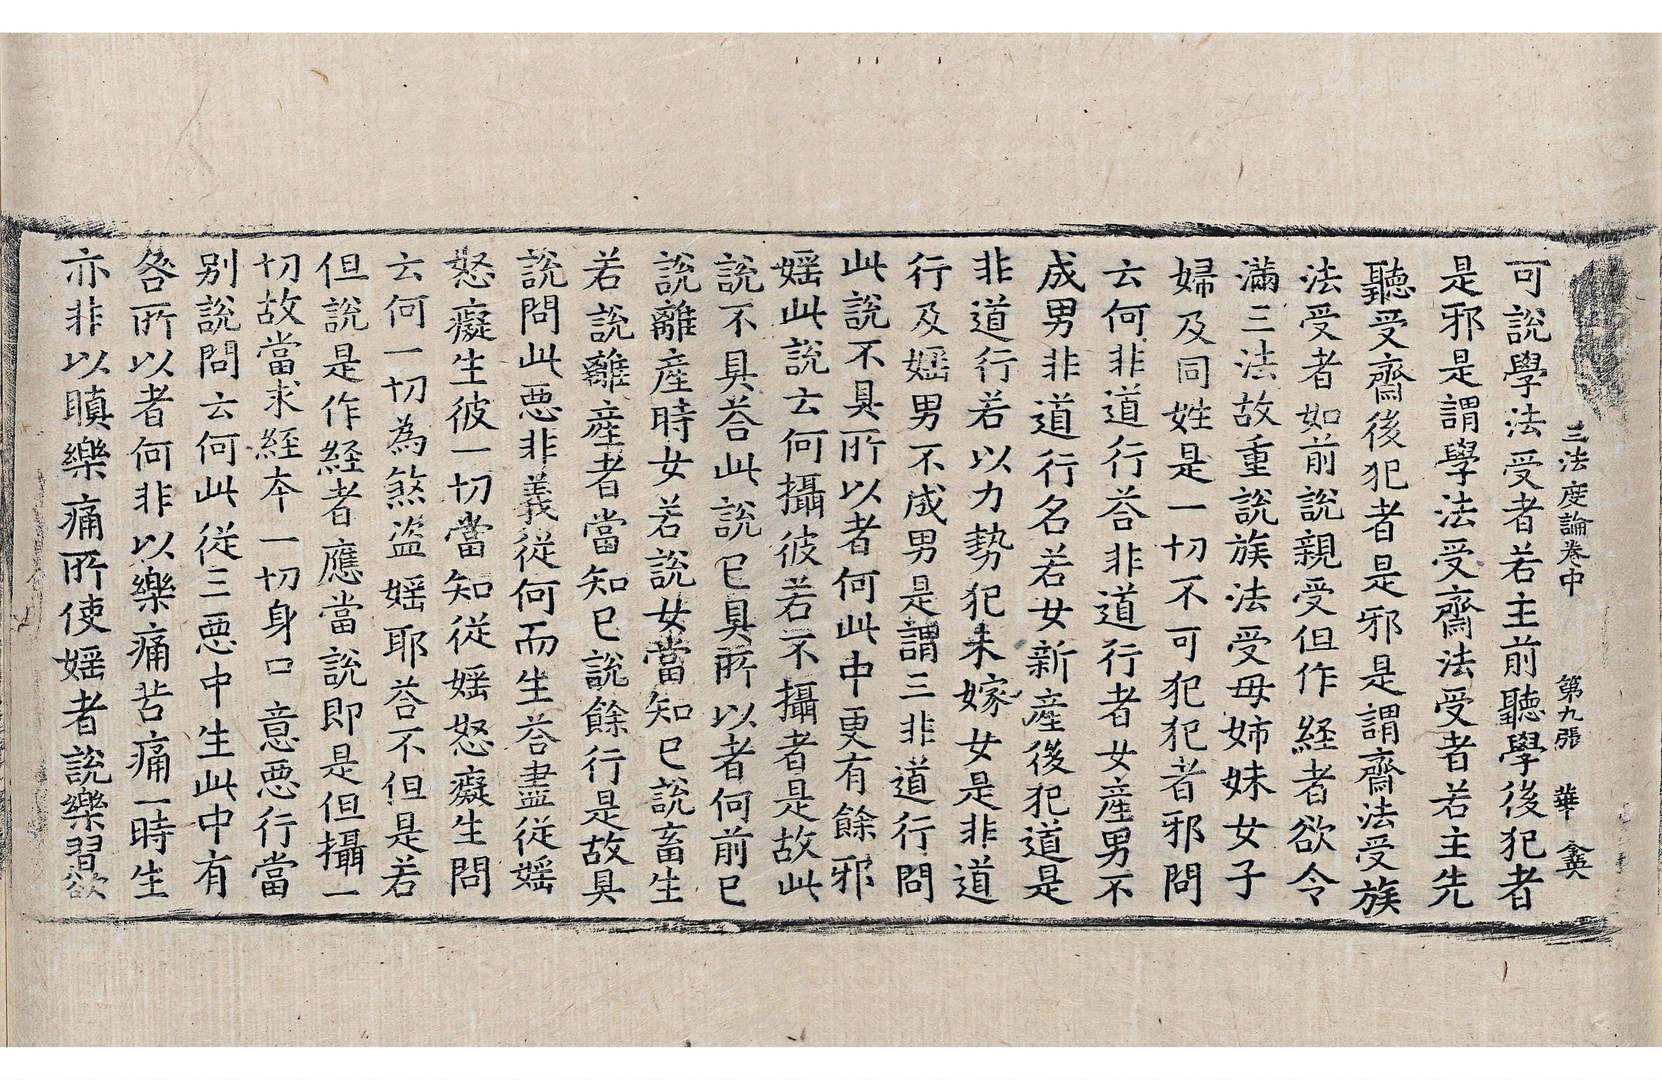 三法度論卷中 第九張 華 龕英
可說學法受者若主前聽學後犯者
是邪是謂學法受齋法受者若主先
聽受齋後犯者是邪是謂齋法受族
法受者如前說親受但作経者欲令
滿三法故重說族法受母姉妹女子
婦及同姓是一切不可犯犯者邪問
云何非道行荅非道行者女產男不
成男非道行名若女新產後犯道是
非道行若以力勢犯未嫁女是非道
行及婬男不成男是謂三非道行問
此說不具所以者何此中更有餘邪
婬此說云何攝彼若不攝者是故此
說不具荅此說已具所以者何前已
說離產時女若說女當知已說畜生
若說離產者當知已說餘行是故具
說問此惡非義從何而生荅盡從婬
怒癡生彼一切當知從婬怒癡生問
云何一切為煞盗婬耶荅不但是若
但說是作経者應當說即是但攝一
切故當求経本一切身口意惡行當
别說問云何此從三惡中生此中有
咎所以者何非以樂痛苦痛一時生
亦非以瞋樂痛所使婬者說樂習欲